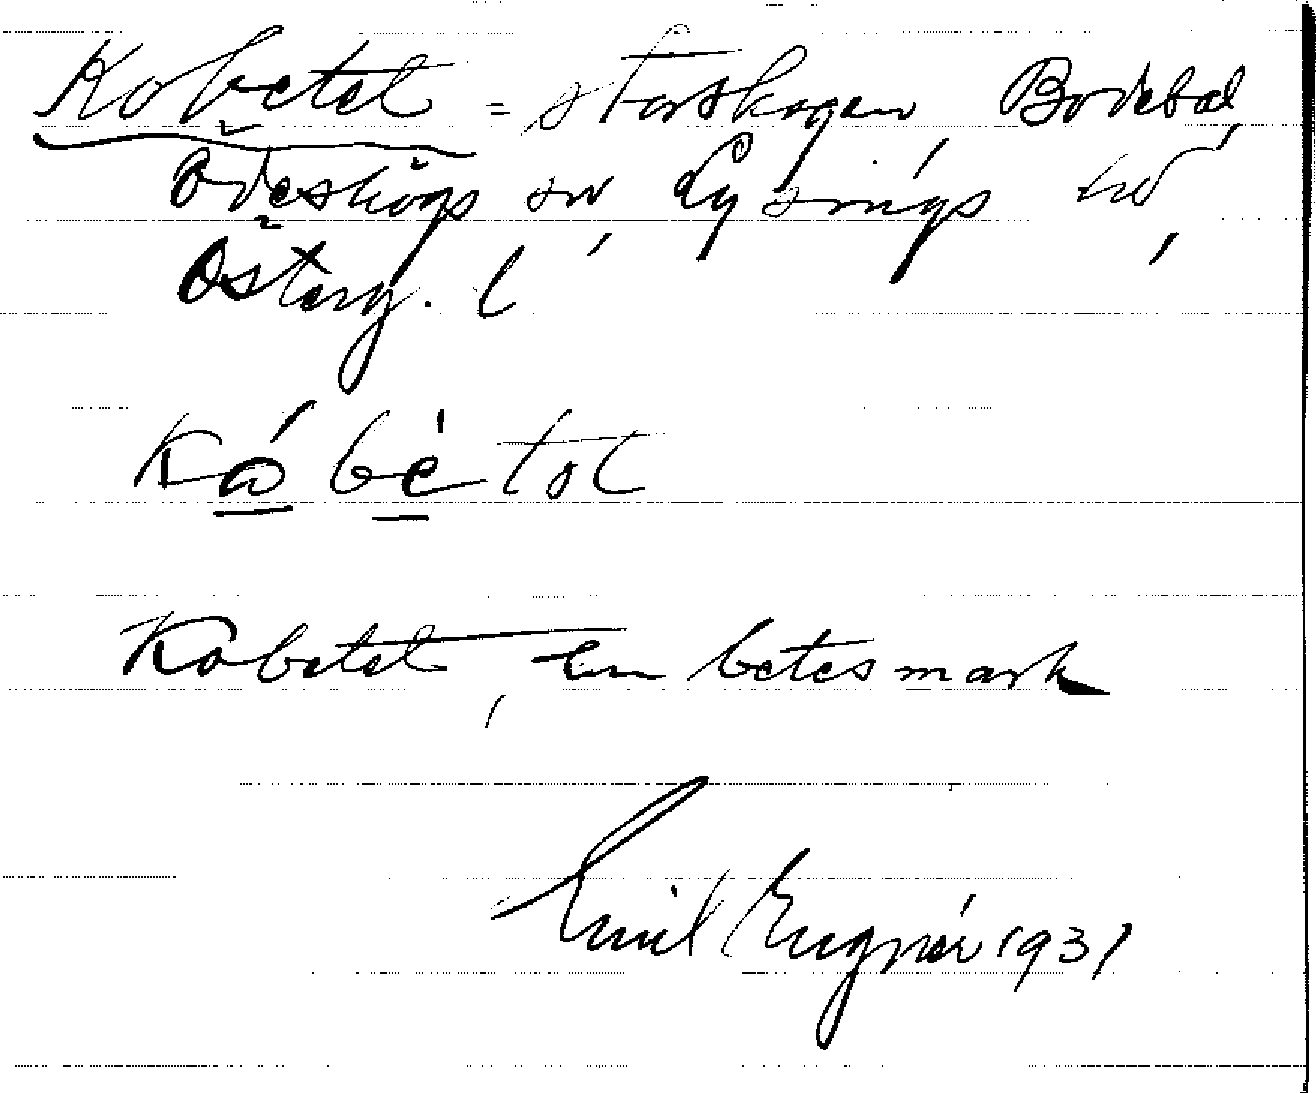 Kobetet = Storskogen, Bodebol,
Ödeshögs sn, Lysings hd,
Österg. l
Kó bè tət
Kobetet, en betesmark
Emil Engnér 1931